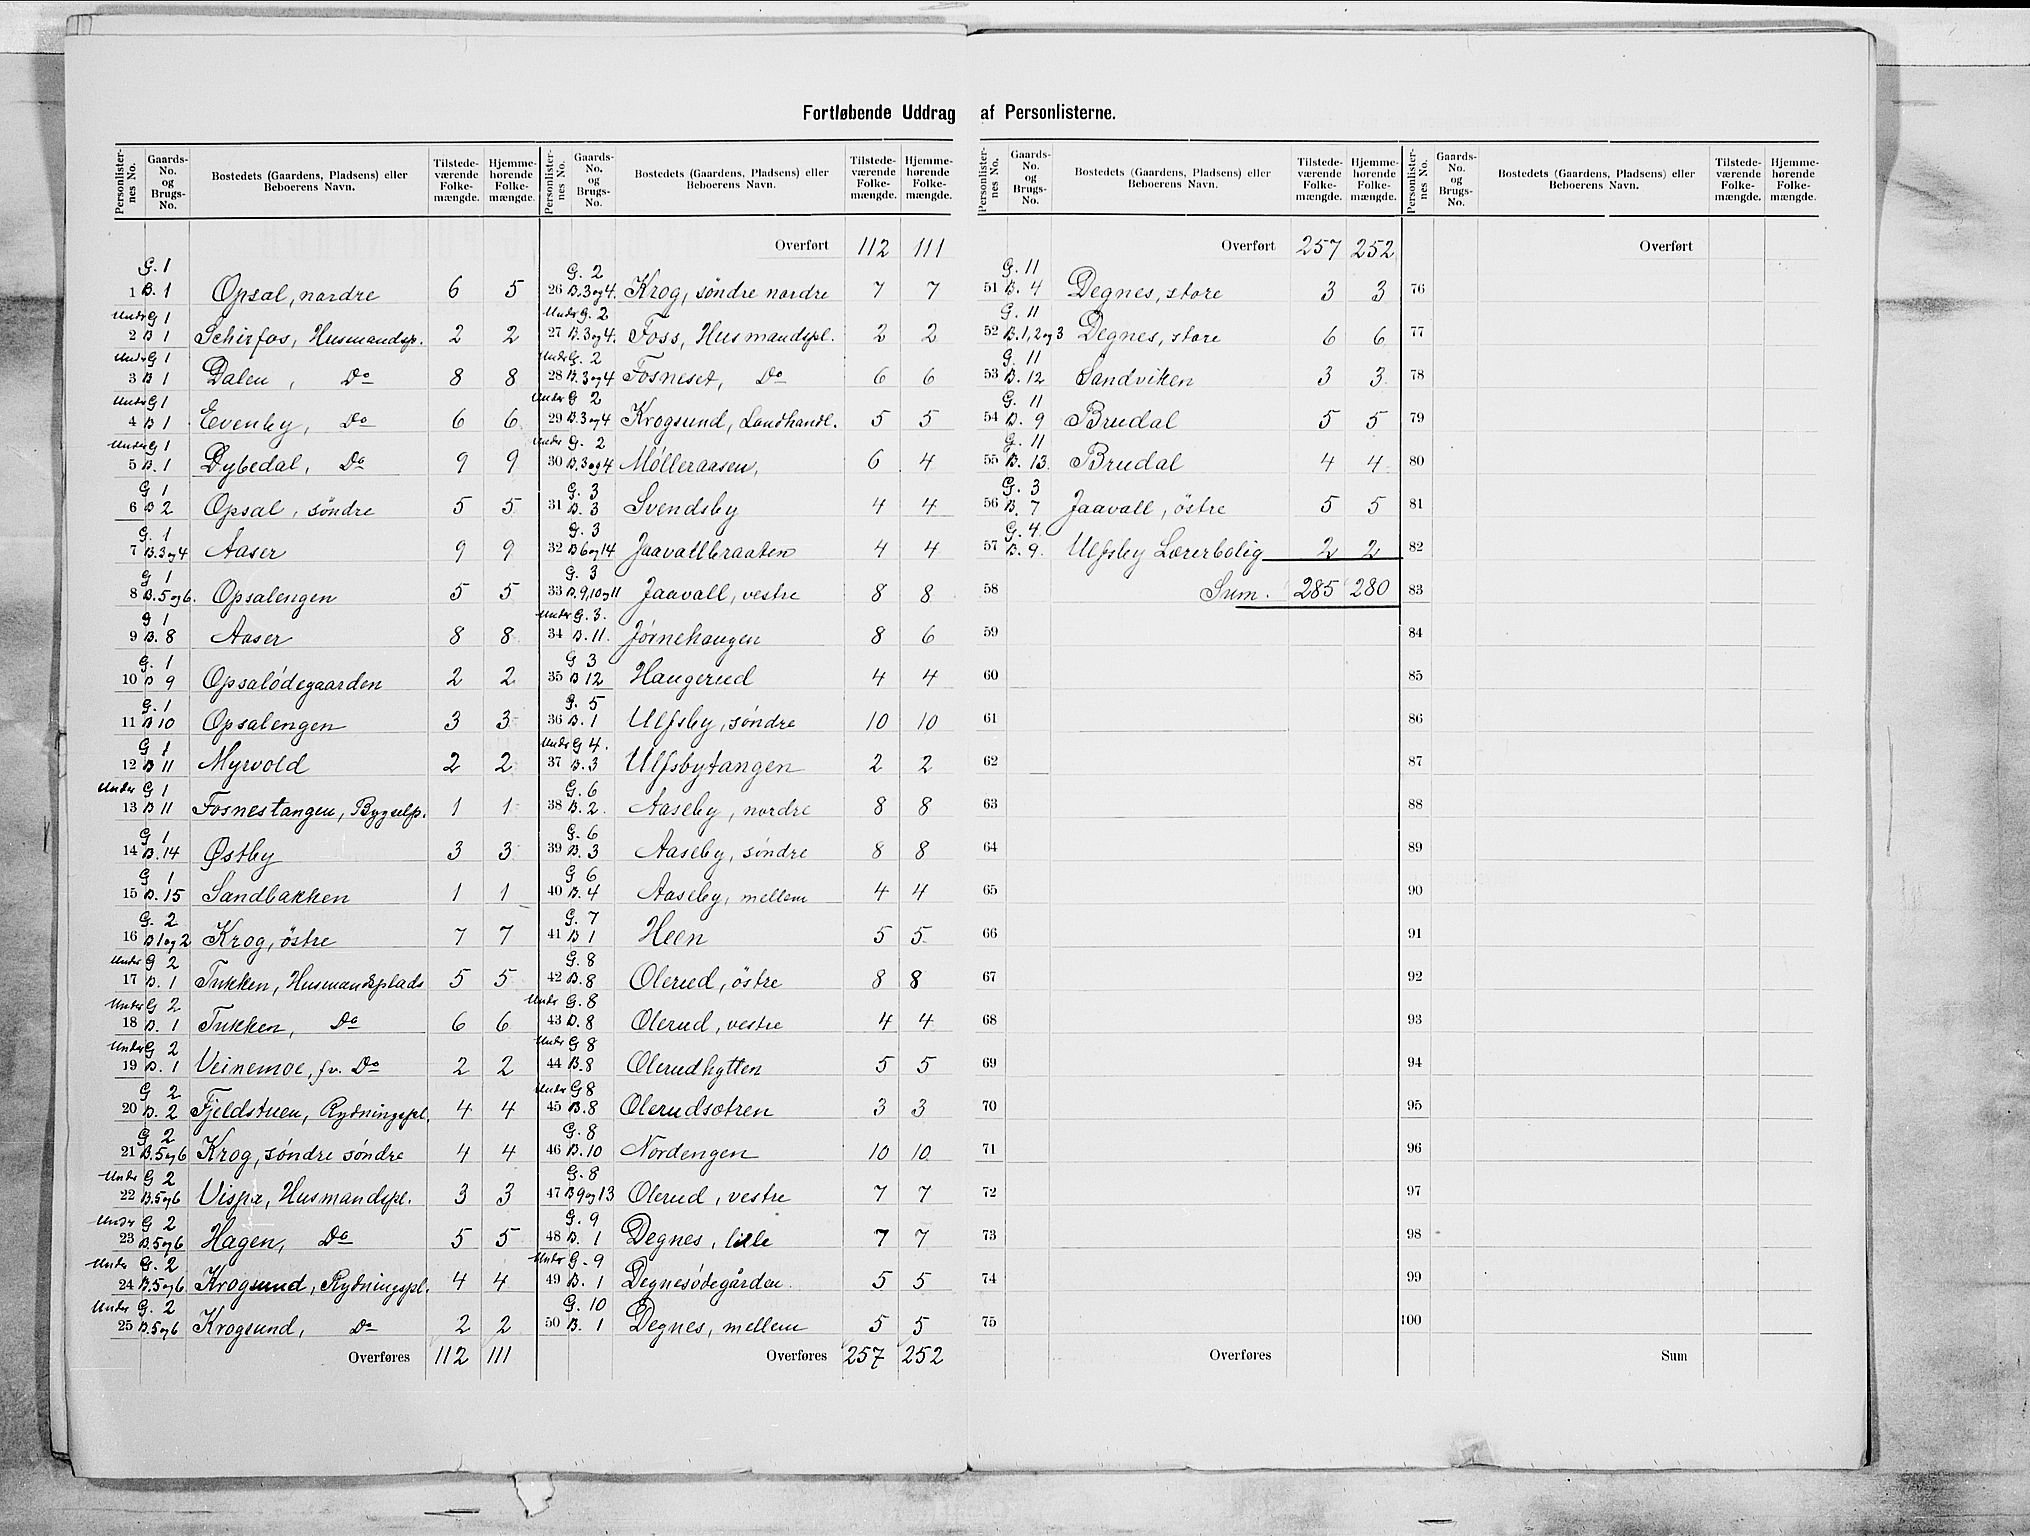 Fortløbende Uddrag af Personlisterne.
Personlister-nes No. Gaards-No. og Brugs-No. Bostedets (Gaardens, Pladsens) eller Beboerens Navn. Tilstede-værende Folke-mængde. Hjemme-hørende Folke-mængde.
G. 1
1 B. 1 Opsal, nordre 6 5
Under G 1
2 B 1 Schirfos, Husmandsp. 2 2
Under G 1
3 B 1 Dalen, Do 8 8
Under G 1
4 B 1 Evenby, Do 6 6
Under G 1
5 B. 1 Dybedal, Do 9 9
G 1
6 B 2 Opsal, søndre 5 5
G. 1
7 B. 3 og 4 Aaser 9 9
G 1
8 B. 5 og 6. Opsalengen 5 5
G 1
9 B. 8 Aaser 8 8
G. 1
10 B 9 Opsalødegaarden 2 2
G. 1
11 B 10 Opsalengen 3 3
G 1
12 B 11 Myrvold 2 2
Under G 1
13 B 11 Fosnestangen, Bygselp. 1 1
G 1
14 B. 14 Østby 3 3
G 1
15 B. 15 Sandbakken 1 1
G. 2
16 B 1 og 2 Krog, östre 7 7
Under G 2
17 B. 1 Tukken, Husmandsplads 5 5
Under G 2
18 B. 1 Tukken, Do 6 6
Under G 2
19 B. 1 Veinemoe, fv. Do 2 2
G 2
20 B. 2 Fjeldstuen, Rydningspl. 4 4
G 2
21 B. 5 og 6 Krog, søndre søndre 4 4
Under G 2
22 B. 5 og 6 Vispa, Husmandspl. 3 3
Under G 2
23 B. 5 og 6 Hagen, Do 5 5
Under G. 2
24 B. 5 og 6 Krogsund, Rydningspl. 4 4
Under G. 2
25 B. 5 og 6 Krogsund, Do 2 2
Overføres 112 111
Personlister-nes No. Gaards-No. og Brugs-No. Bostedets (Gaardens, Pladsens) eller Beboerens Navn. Tilstede-værende Folke-mængde. Hjemme-hørende Folke-mængde.
Overført 112 111
G. 2
26 B. 3 og 4. Krog, søndre nordre 7 7
Under G. 2
27 B. 3 og 4. Foss, Husmandspl. 2 2
Under G. 2
28 B. 3 og 4 Fosneset, Do 6 6
Under G 2
29 B. 3 og 4 Krogsund, Landhandl. 5 5
Under G. 2
30 B. 3 og 4 Mølleraasen, 6 4
G. 3
31 B. 3 Svendsby 4 4
G. 3
32 B 6 og 14 Jaavallbraaten 4 4
G. 3
33 B. 9, 10 og 11 Jaavall, vestre 8 8
Under G. 3.
34 B. 11. Jørnehaugen 8 6
G 3
35 B 12 Haugerud 4 4
G. 5
36 B. 1 Ulfsby, søndre 10 10
Under G 4.
37 B. 3 Ulfsbytangen 2 2
G. 6
38 B. 2. Aaseby, nordre 8 8
G. 6
39 B. 3 Aaseby, søndre 8 8
G. 6
40 B. 4 Aaseby, mellem 4 4
G. 7
41 B 1 Heen 5 5
G. 8
42 B. 8 Olerud, östre 8 8
Under G. 8
43 B. 8 Olerud, vestre 4 4
Under G 8
44 B. 8 Olerudhytten 5 5
Under G 8
45 B. 8 Olerudsætren 3 3
G. 8
46 B. 10 Nordengen 10 10
G. 8
47 B 9 og 13 Olerud, vestre 7 7
G. 9
48 B. 1 Degnes, lille 7 7
Under G. 9
49 B. 1 Degnesødegården 5 5
G. 10
50 B. 1 Degnes, mellem 5 5
Overføres 257 252
Personlister-nes No. Gaards-No. og Brugs-No. Bostedets (Gaardens, Pladsens) eller Beboerens Navn. Tilstede-værende Folke-mængde. Hjemme-hørende Folke-mængde.
Overført 257 252
G. 11
51 B. 4 Degnes, store 3 3
G. 11
52 B. 1, 2 og 3 Degnes, store 6 6
G. 11
53 B. 12 Sandviken 3 3
G. 11
54 B. 9 Brudal 5 5
G. 11
55 B. 13. Brudal 4 4
G. 3
56 B. 7 Jaavall, östre 5 5
G. 4.
57 B. 9. Ulfsby Lærerbolig 2 2
58 Sum. 285 280
59
60
61
62
63
64
65
66
67
68
69
70
71
72
73
74
75
Overføres
Personlister-nes No. Gaards-No. og Brugs-No. Bostedets (Gaardens, Pladsens) eller Beboerens Navn. Tilstede-værende Folke-mængde. Hjemme-hørende Folke-mængde.
Overført
76
77
78
79
80
81
82
83
84
85
86
87
88
89
90
91
92
93
94
95
96
97
98
99
100
Sum